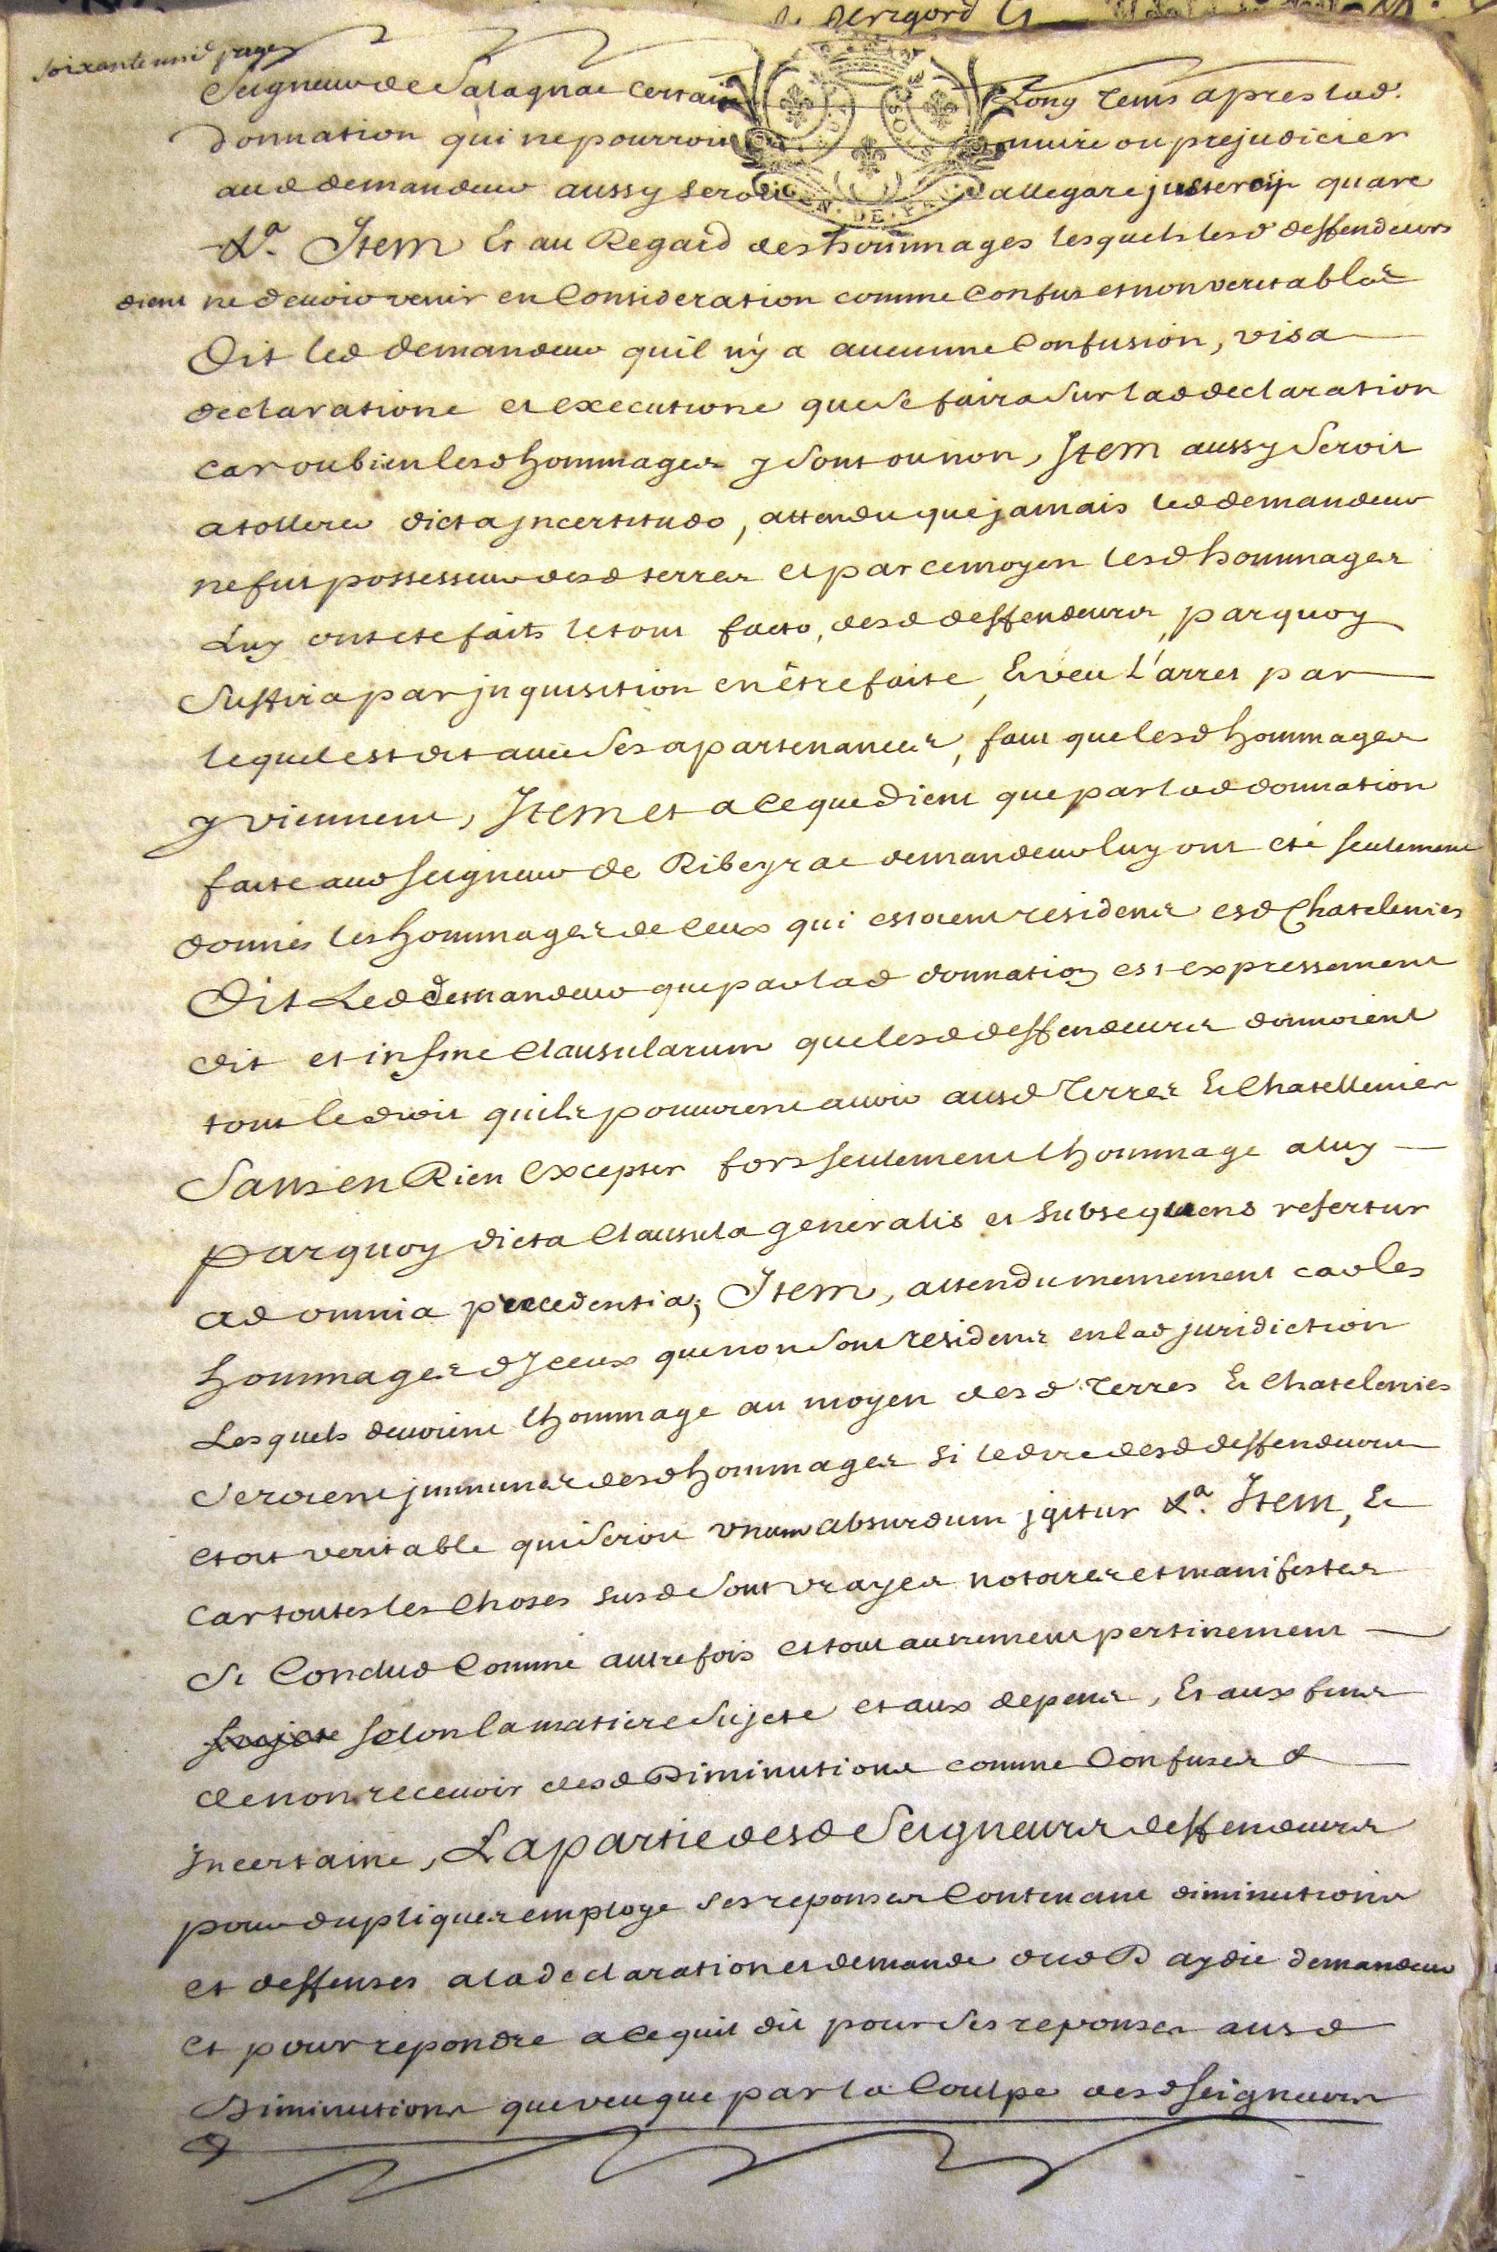 de perigord
soixante une page
Seigneur de Salagnac certain Long tems apres lad.
donnation qui ne pourroit nuire ou prejudicier
aud demandeur aussy seroit allegare jus tercij quare
&a. Item Et au Regard des hommages lesquels lesd deffendeurs
dient ne devoir venir en Consideration comme Confus et non veritables
Dit led demandeur quil n'y a aucunne Confusion, visa
declaratione et executione que se faira sur lad declaration
car ou bien lesd hommages y sont ou non, Item aussy seroit
a tollere dicta jncertitudo, attendu que jamais led demandeur
ne fut possesseur desd terres et par ce moyen lesd hommages
Luy ont ete faits le tout facto, desd deffendeurs, par quoy
suffira par jnquisition en être faite, Et veu l'arret par
lequel est dit avec ses apartenances, faut que lesd hommages
y viennent, Item et a Ce que Dient que par lad donnation
faite aud seigneur de Ribeyrac demandeur luy ont eté seulement
donnés les hommages de Ceux qui estoient residens esd Chatelenies
Dit Led demandeur que par lad donnation est expressement
dit et in fine Clausularum que lesd deffendeurs donnoient
tout le droit quils pouvoient avoir ausd Terres Et Chatellenies
Sans en Rien Excepter fors seulement lhommage a luy
par quoy dicta Clausula generalis et subsequens refertur
ad omnia precedentia; Item, attendu memement car les
hommages d Jceux que non sont residens en lad juridiction
Lesquels devoient lhommage au moyen desd Terres Et Chatelenies
seroient jmmunes desd hommages si le dire desd deffendeurs
etoit veritable qui seroit unum absurdum jgitur &a. Item, Et
Car toutes les Choses susd sont vrayes notoires et manifestes
si Conclud Comme autrefois et tout autrement pertinement
sujete selon la matiere sujete et aux depens, Et aux fins
de non recevoir desd Diminutions comme Confuses &
Incertaine, La partie desd Seigneurs deffendeurs
pour dupliques employe ses reponses Contenant diminutions
et deffenses a la declaration et demande dud D aydie demandeur
et pour repondre a Ce quil dit pour ses reponses ausd
Diminutions que veu que par la Coulpe desd seigneurs